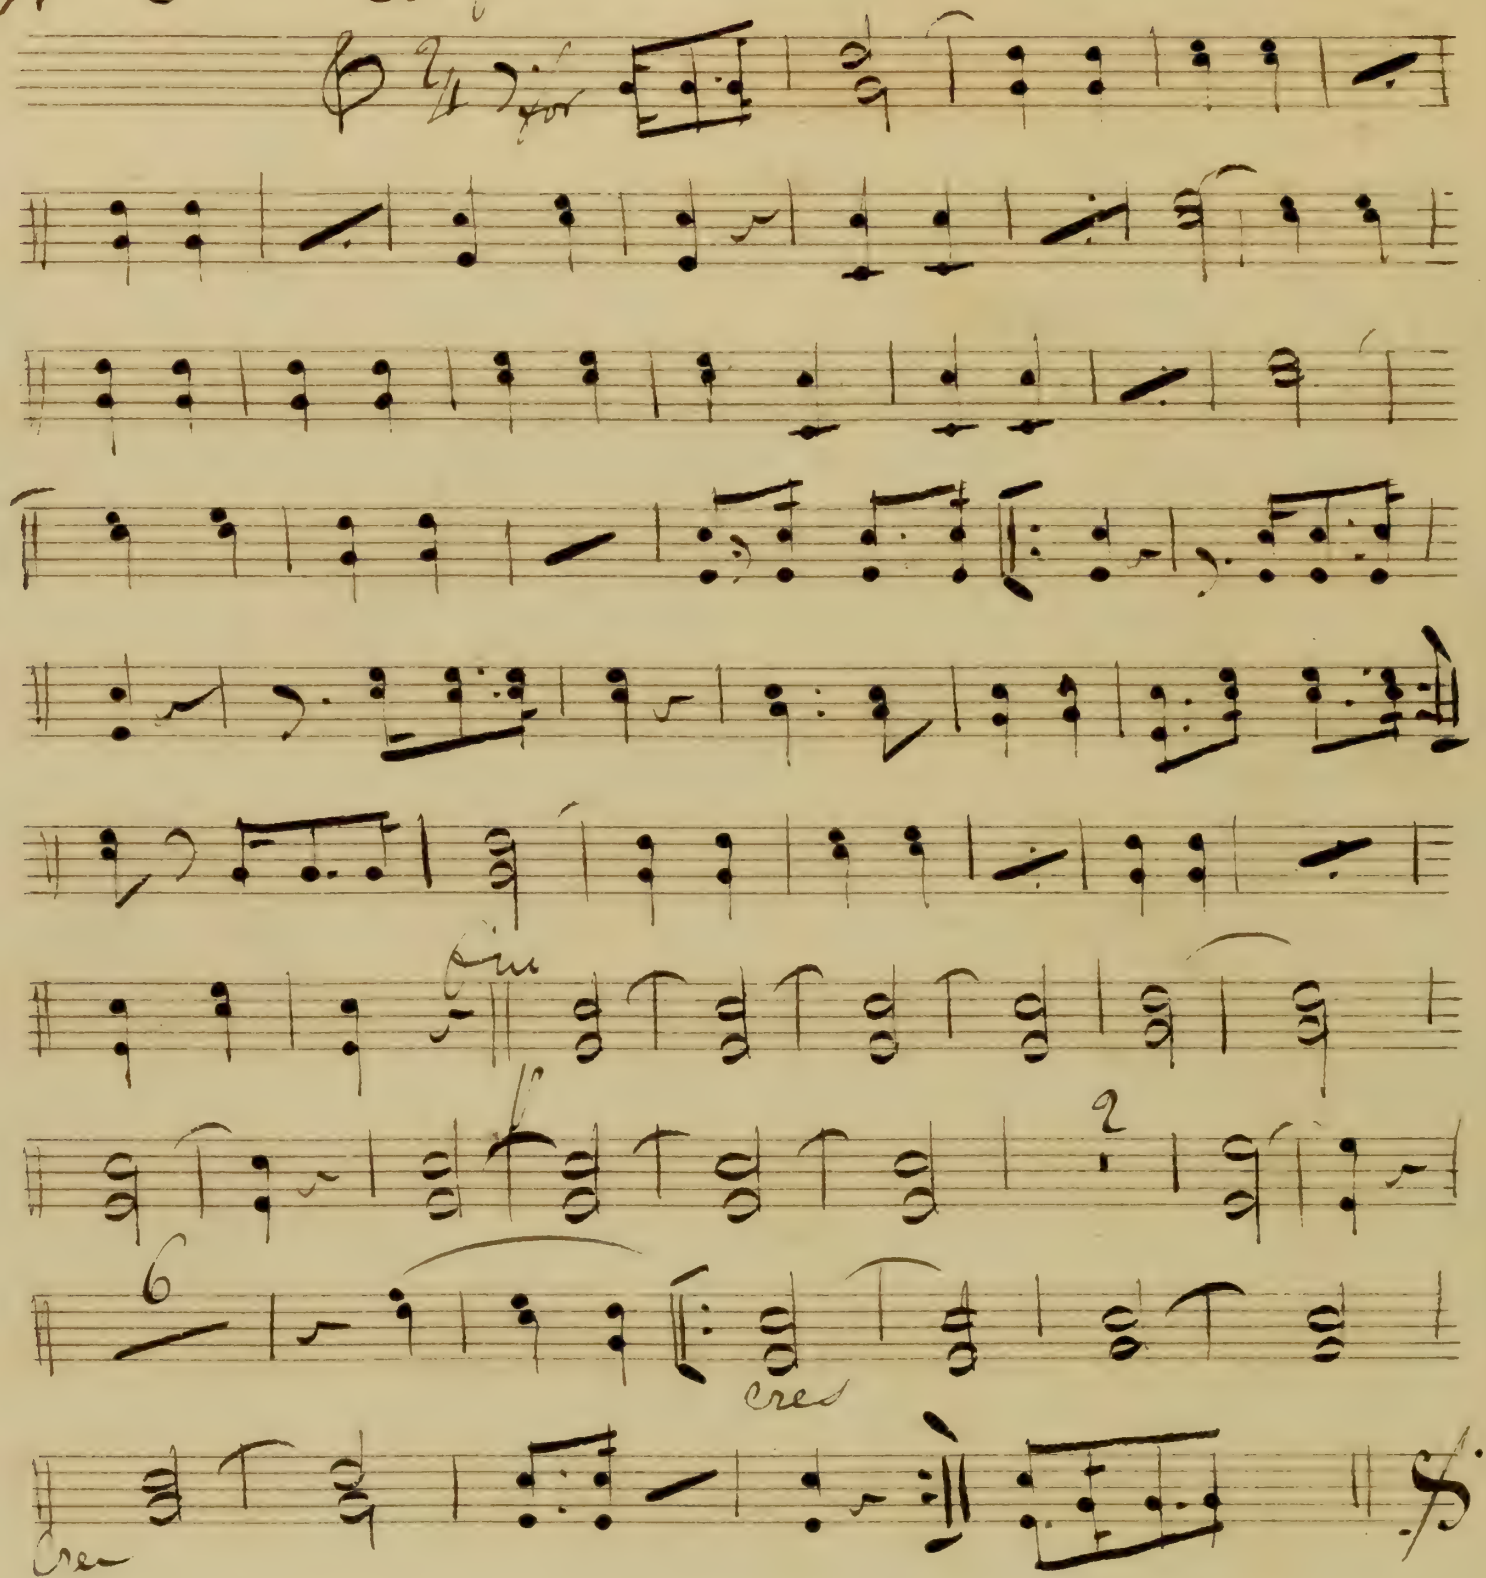 2/4 for
fin
f
2
6
cres
cres